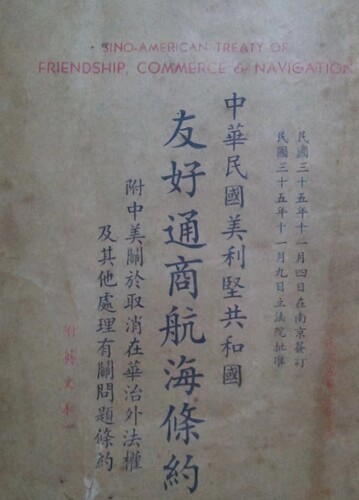 SINO-AMERICAN TREATY OF
FRIENDSHIP, COMMERCE & NAVIGATION
民國三十五年十一月四日在南京簽訂
民國三十五年十一月九日立法院批准
中華民國美利堅共和國
友好通商航海條約
附中美關於取消在華治外法權
及其他處理有關問題條約